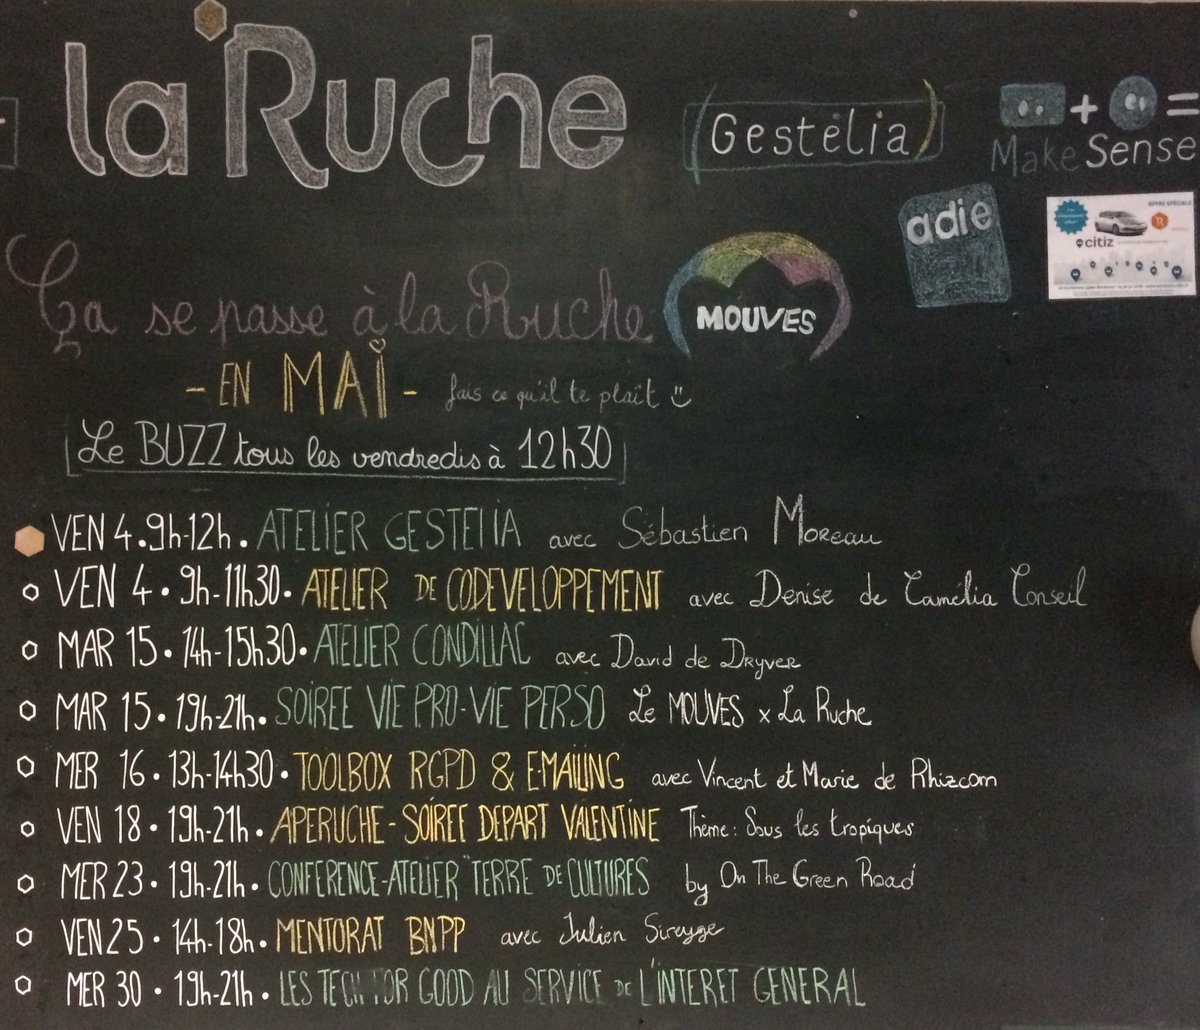 la Ruche
(Gestélia)
+ =
MakeSense
adie
OFFRE SPÉCIALE
citiz
Ça se passe à la Ruche
MOUVES
- EN MAI -
fais ce qu'il te plaît
Le BUZZ tous les vendredis à 12h30
VEN 4 • 9h-12h • ATELIER GESTELIA avec Sébastien Moreau
VEN 4 • 9h-11h30 • ATELIER DE CODEVELOPPEMENT avec Denise de Camélia Conseil
MAR 15 • 14h-15h30 • ATELIER CONDILLAC avec David de Dryver
MAR 15 • 19h-21h • SOIREE VIE PRO-VIE PERSO Le MOUVES x La Ruche
MER 16 • 13h-14h30 • TOOLBOX RGPD & E-MAILING avec Vincent et Marie de Rhizcom
VEN 18 • 19h-21h • APERUCHE - SOIREE DEPART VALENTINE Thème : Sous les tropiques
MER 23 • 19h-21h • CONFERENCE-ATELIER "TERRE DE CULTURES by On The Green Road
VEN 25 • 14h-18h • MENTORAT BNPP avec Julien Sireyge
MER 30 • 19h-21h • LES TECH FOR GOOD AU SERVICE DE L'INTERET GENERAL